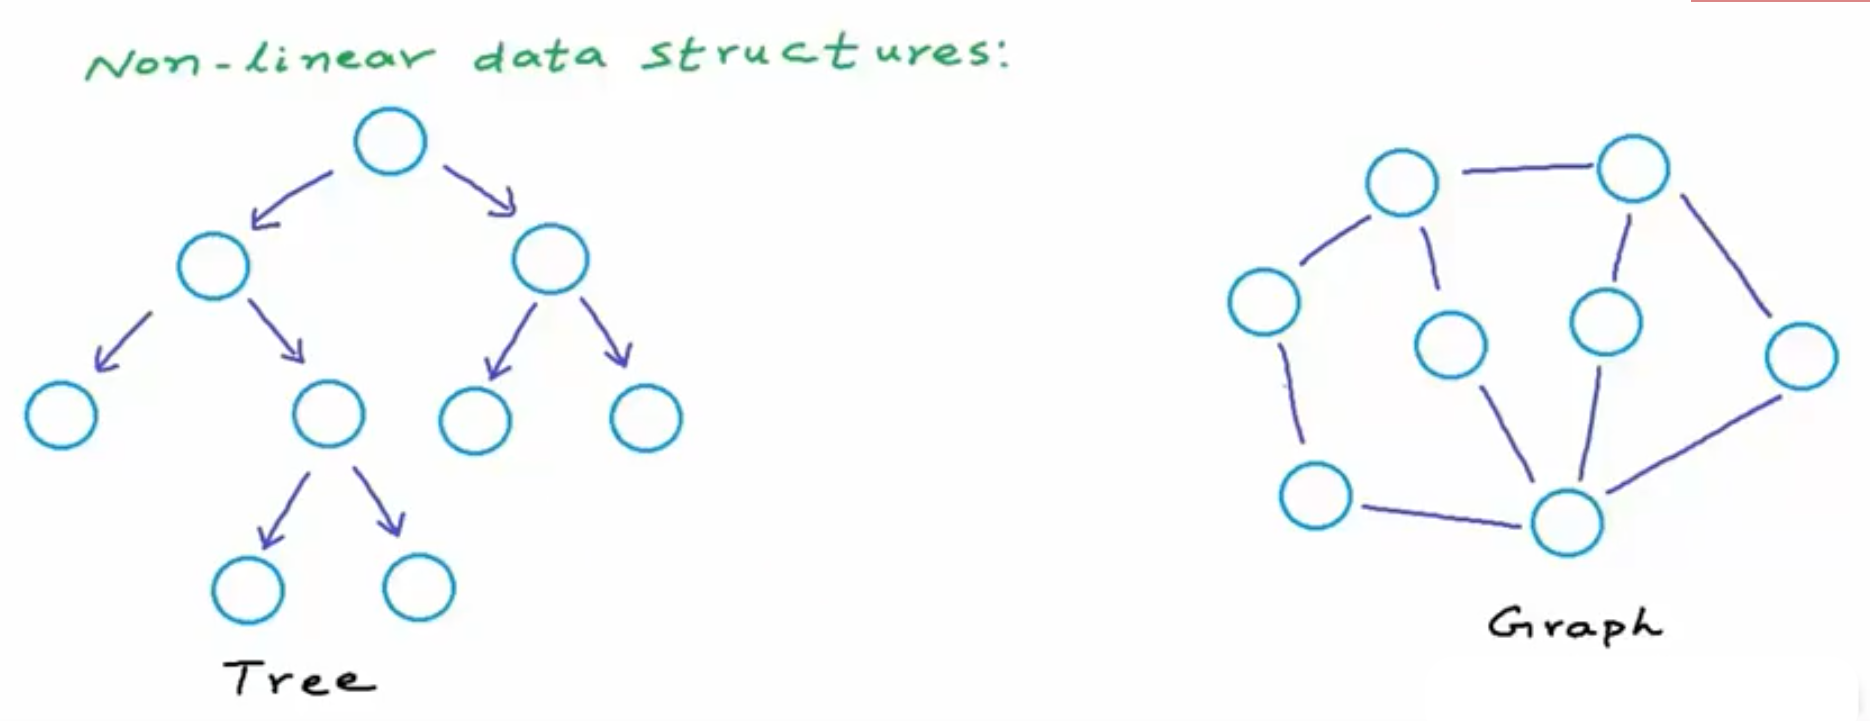 Non-linear data structures:
Tree
Graph